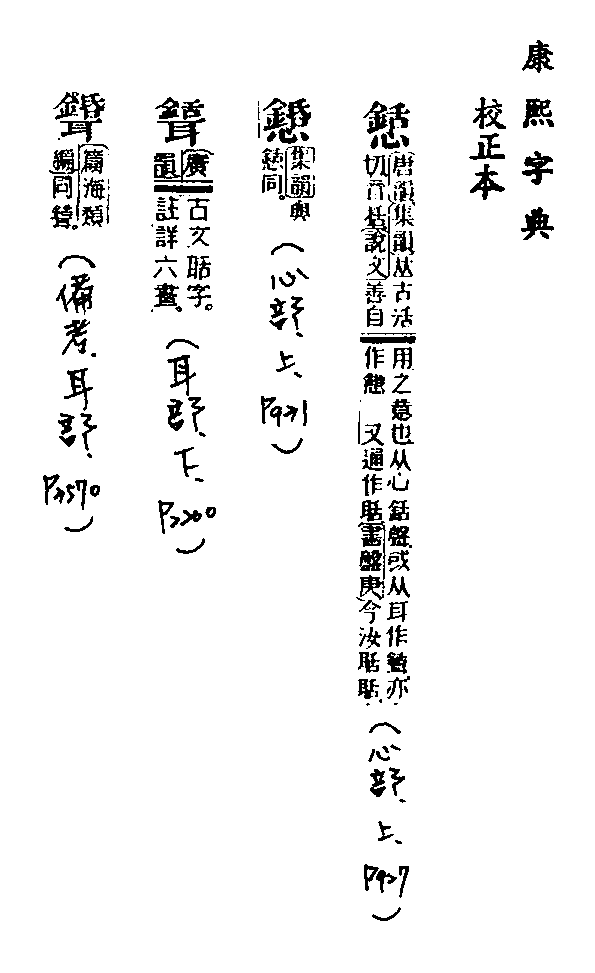 康熙字典
校正本
唐韻集韻𠀤古活
切音括說文善自
用之意也从心銛聲或从耳作𨬓亦
作懖 又通作聒書盤庚今汝聒聒
(心部、上、P927)
集韻與
同。
(心部、上、P931)
廣
韻
古文聒字。
註詳六畫。
(耳部、下、P2200)
篇海類
編同
(備考、耳部、P3570)